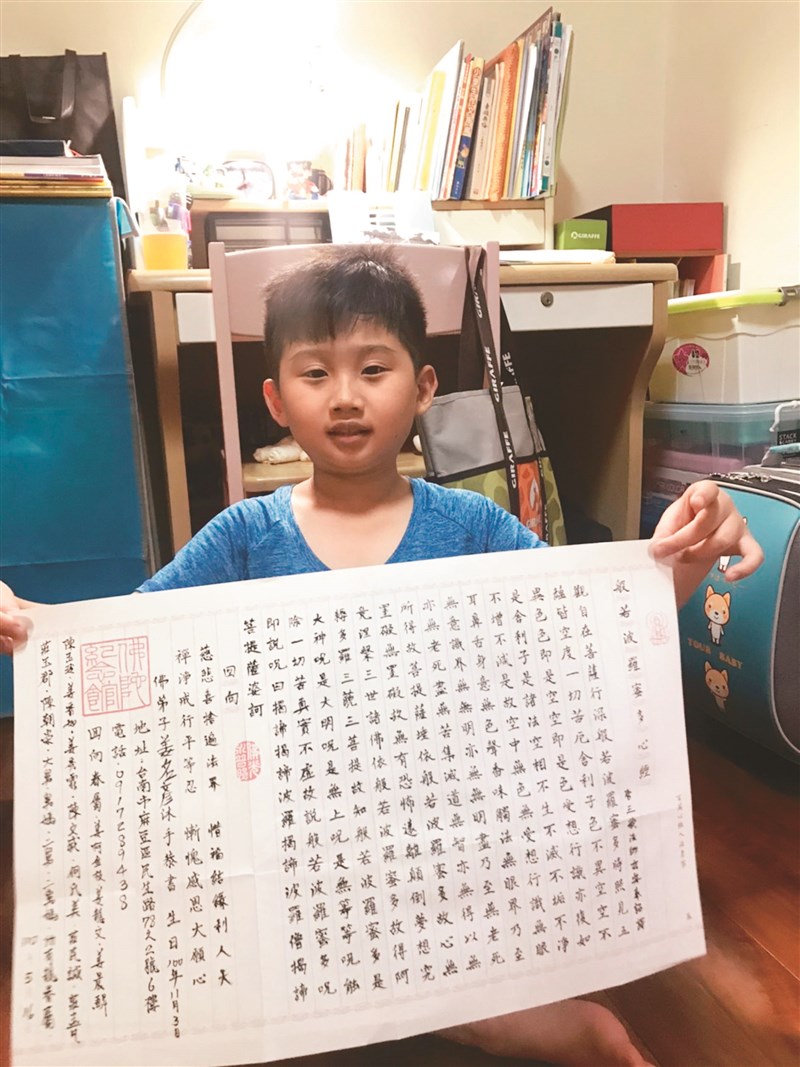 般若波羅蜜多心經
唐三藏法師玄奘奉詔譯
觀自在菩薩行深般若波羅蜜多時照見五
蘊皆空度一切苦厄舍利子色不異空空不
異色色即是空空即是色受想行識亦復如
是舍利子是諸法空相不生不滅不垢不淨
不增不減是故空中無色無受想行識無眼
耳鼻舌身意無色聲香味觸法無眼界乃至
無意識界無無明亦無無明盡乃至無老死
亦無老死盡無苦集滅道無智亦無得以無
所得故菩提薩埵依般若波羅蜜多故心無
罣礙無罣礙故無有恐怖遠離顛倒夢想究
竟涅槃三世諸佛依般若波羅蜜多故得阿
耨多羅三藐三菩提故知般若波羅蜜多是
大神呪是大明呪是無上呪是無等等呪能
除一切苦真實不虛故說般若波羅蜜多呪
即說呪曰揭諦揭諦波羅揭諦波羅僧揭諦
菩提薩婆訶
回向
慈悲喜捨遍法界 惜福結緣利人天
禪淨戒行平等忍 慚愧感恩大願心
佛弟子姜名彥沐手恭書 生日100年11月3日
地址:台南市麻豆區民生路73之2號6樓
電話:0917289438
佛陀紀念館
回向眷屬:
GIRAFFE
GIRAFFE
GIRAFFE
GIRAFFE
YOUR BABY